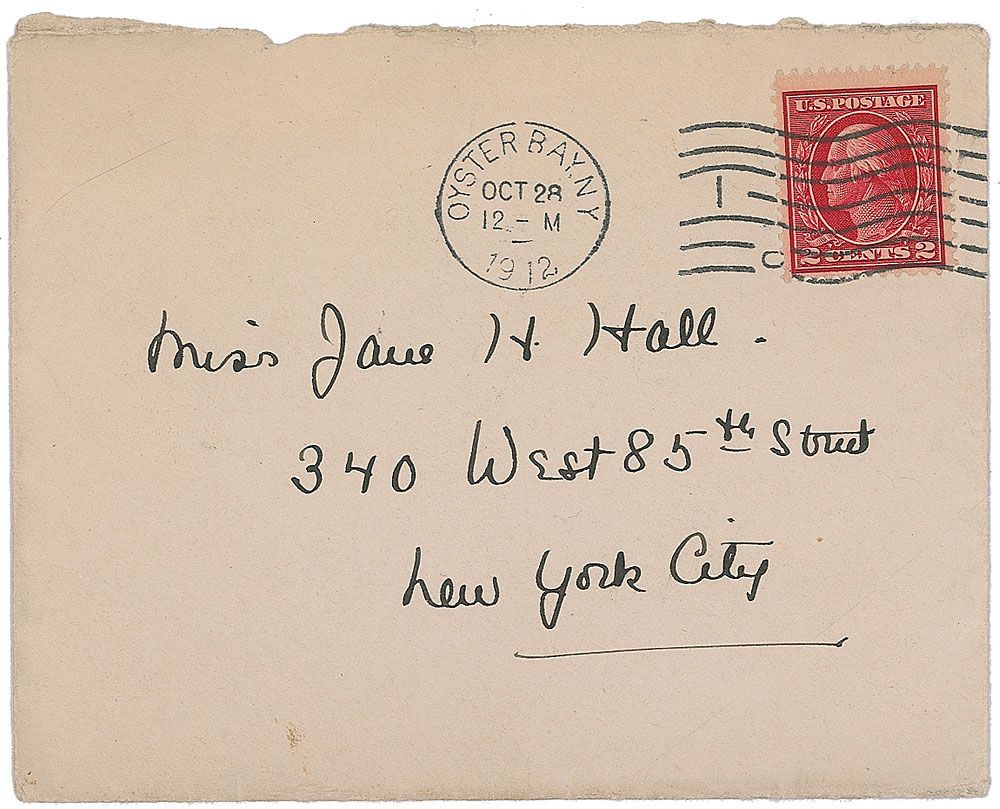 U.S. POSTAGE
2 CENTS 2
OYSTER BAY, N.Y.
OCT 28
12 - M
1912
Miss Jane H. Hall.
340 West 85th Street
New York City